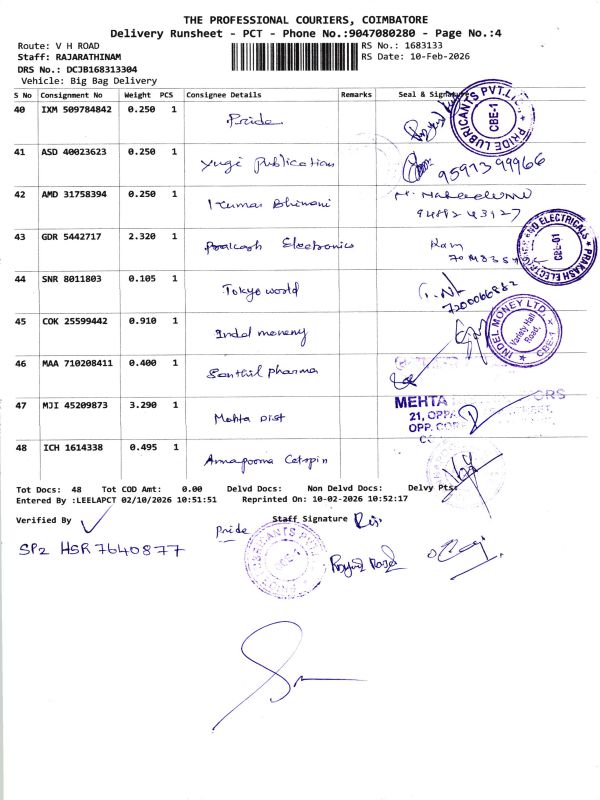 THE PROFESSIONAL COURIERS, COIMBATORE
Delivery Runsheet - PCT - Phone No.:9047080280 - Page No.:4
Route: V H ROAD
RS No.: 1683133
Staff: RAJARATHINAM
RS Date: 10-Feb-2026
DRS No.: DCJB168313304
Vehicle: Big Bag Delivery
S No Consignment No Weight PCS Consignee Details Remarks Seal & Signature
40 IXM 509784842 0.250 1 Pride
PRIDE LUBRICANTS PVT.LTD. CBE-1
41 ASD 40023623 0.250 1 Yugi Publication
42 AMD 31758394 0.250 1 Kumar Bhimani
43 GDR 5442717 2.320 1 Prakash Electronics Ram
PRAKASH ELECTRICALS CBE-01
44 SNR 8011803 0.105 1 Tokyo world
7200066862
45 COK 25599442 0.910 1 Indal moneny
INDEL MONEY LTD. Variety Hall Road, CBE-1
46 MAA 710208411 0.400 1 Santhil pharma
47 MJI 45209873 3.290 1 Mehta Dist
MEHTA
21, OPP
OPP.
48 ICH 1614338 0.495 1 Annapoorna
Tot Docs: 48 Tot COD Amt: 0.00 Delvd Docs: Non Delvd Docs: Delvy Pts:
Entered By :LEELAPCT 02/10/2026 10:51:51 Reprinted On: 10-02-2026 10:52:17
Verified By
Staff Signature
Pride
SP2 HSR 7640877